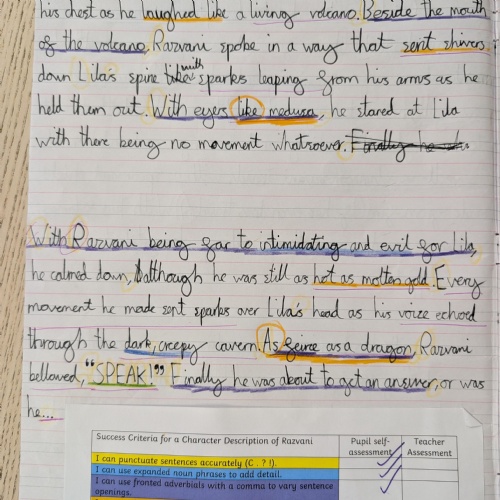 his chest as he laughed like a living volcano. Beside the mouth
of the volcano, Razvani spoke in a way that sent shivers
down Lila's spine like with sparks leaping from his arms as he
held them out. With eyes like medusa, he stared at Lila
with there being no movement whatsoever. Finally he
With Razvani being far to intimidating and evil for Lila,
he calmed down, although he was still as hot as molten gold. Every
movement he made sent sparks over Lila's head as his voice echoed
through the dark, creepy cavern. As feirce as a dragon, Razvani
bellowed, "SPEAK!" Finally he was about to get an answer, or was
he...
Success Criteria for a Character Description of Razvani
Pupil self-assessment
Teacher Assessment
I can punctuate sentences accurately (C . ? !).
I can use expanded noun phrases to add detail.
I can use fronted adverbials with a comma to vary sentence
openings.